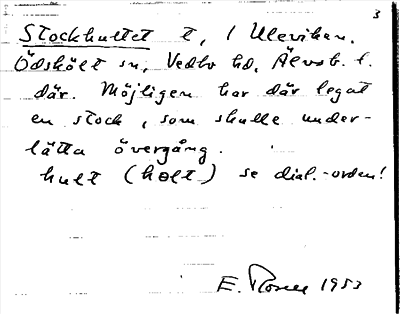 3
Stockhultet t, / Uleviken.
Ödskölt sn, Vedbo hd, Älvsb. l.
där. Möjligen har där legat
en stock, som skulle under-
lätta övergång.
hult (holt) se dial.-orden!
E. 1953